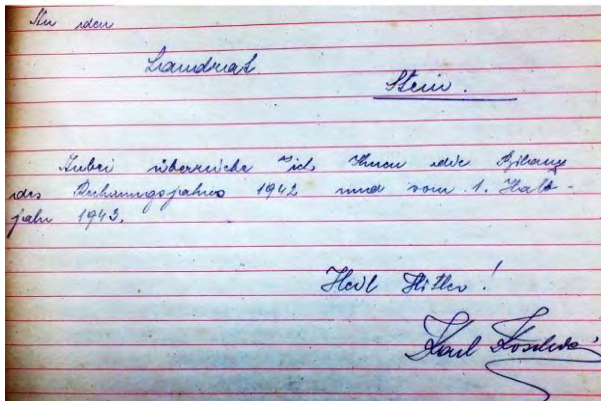 An den
Landrat
Stein.
Anbei überreiche ich Ihnen die Bilanz
des Rechnungsjahres 1942 und vom 1. Halb-
jahr 1943.
Heil Hitler!
Karl